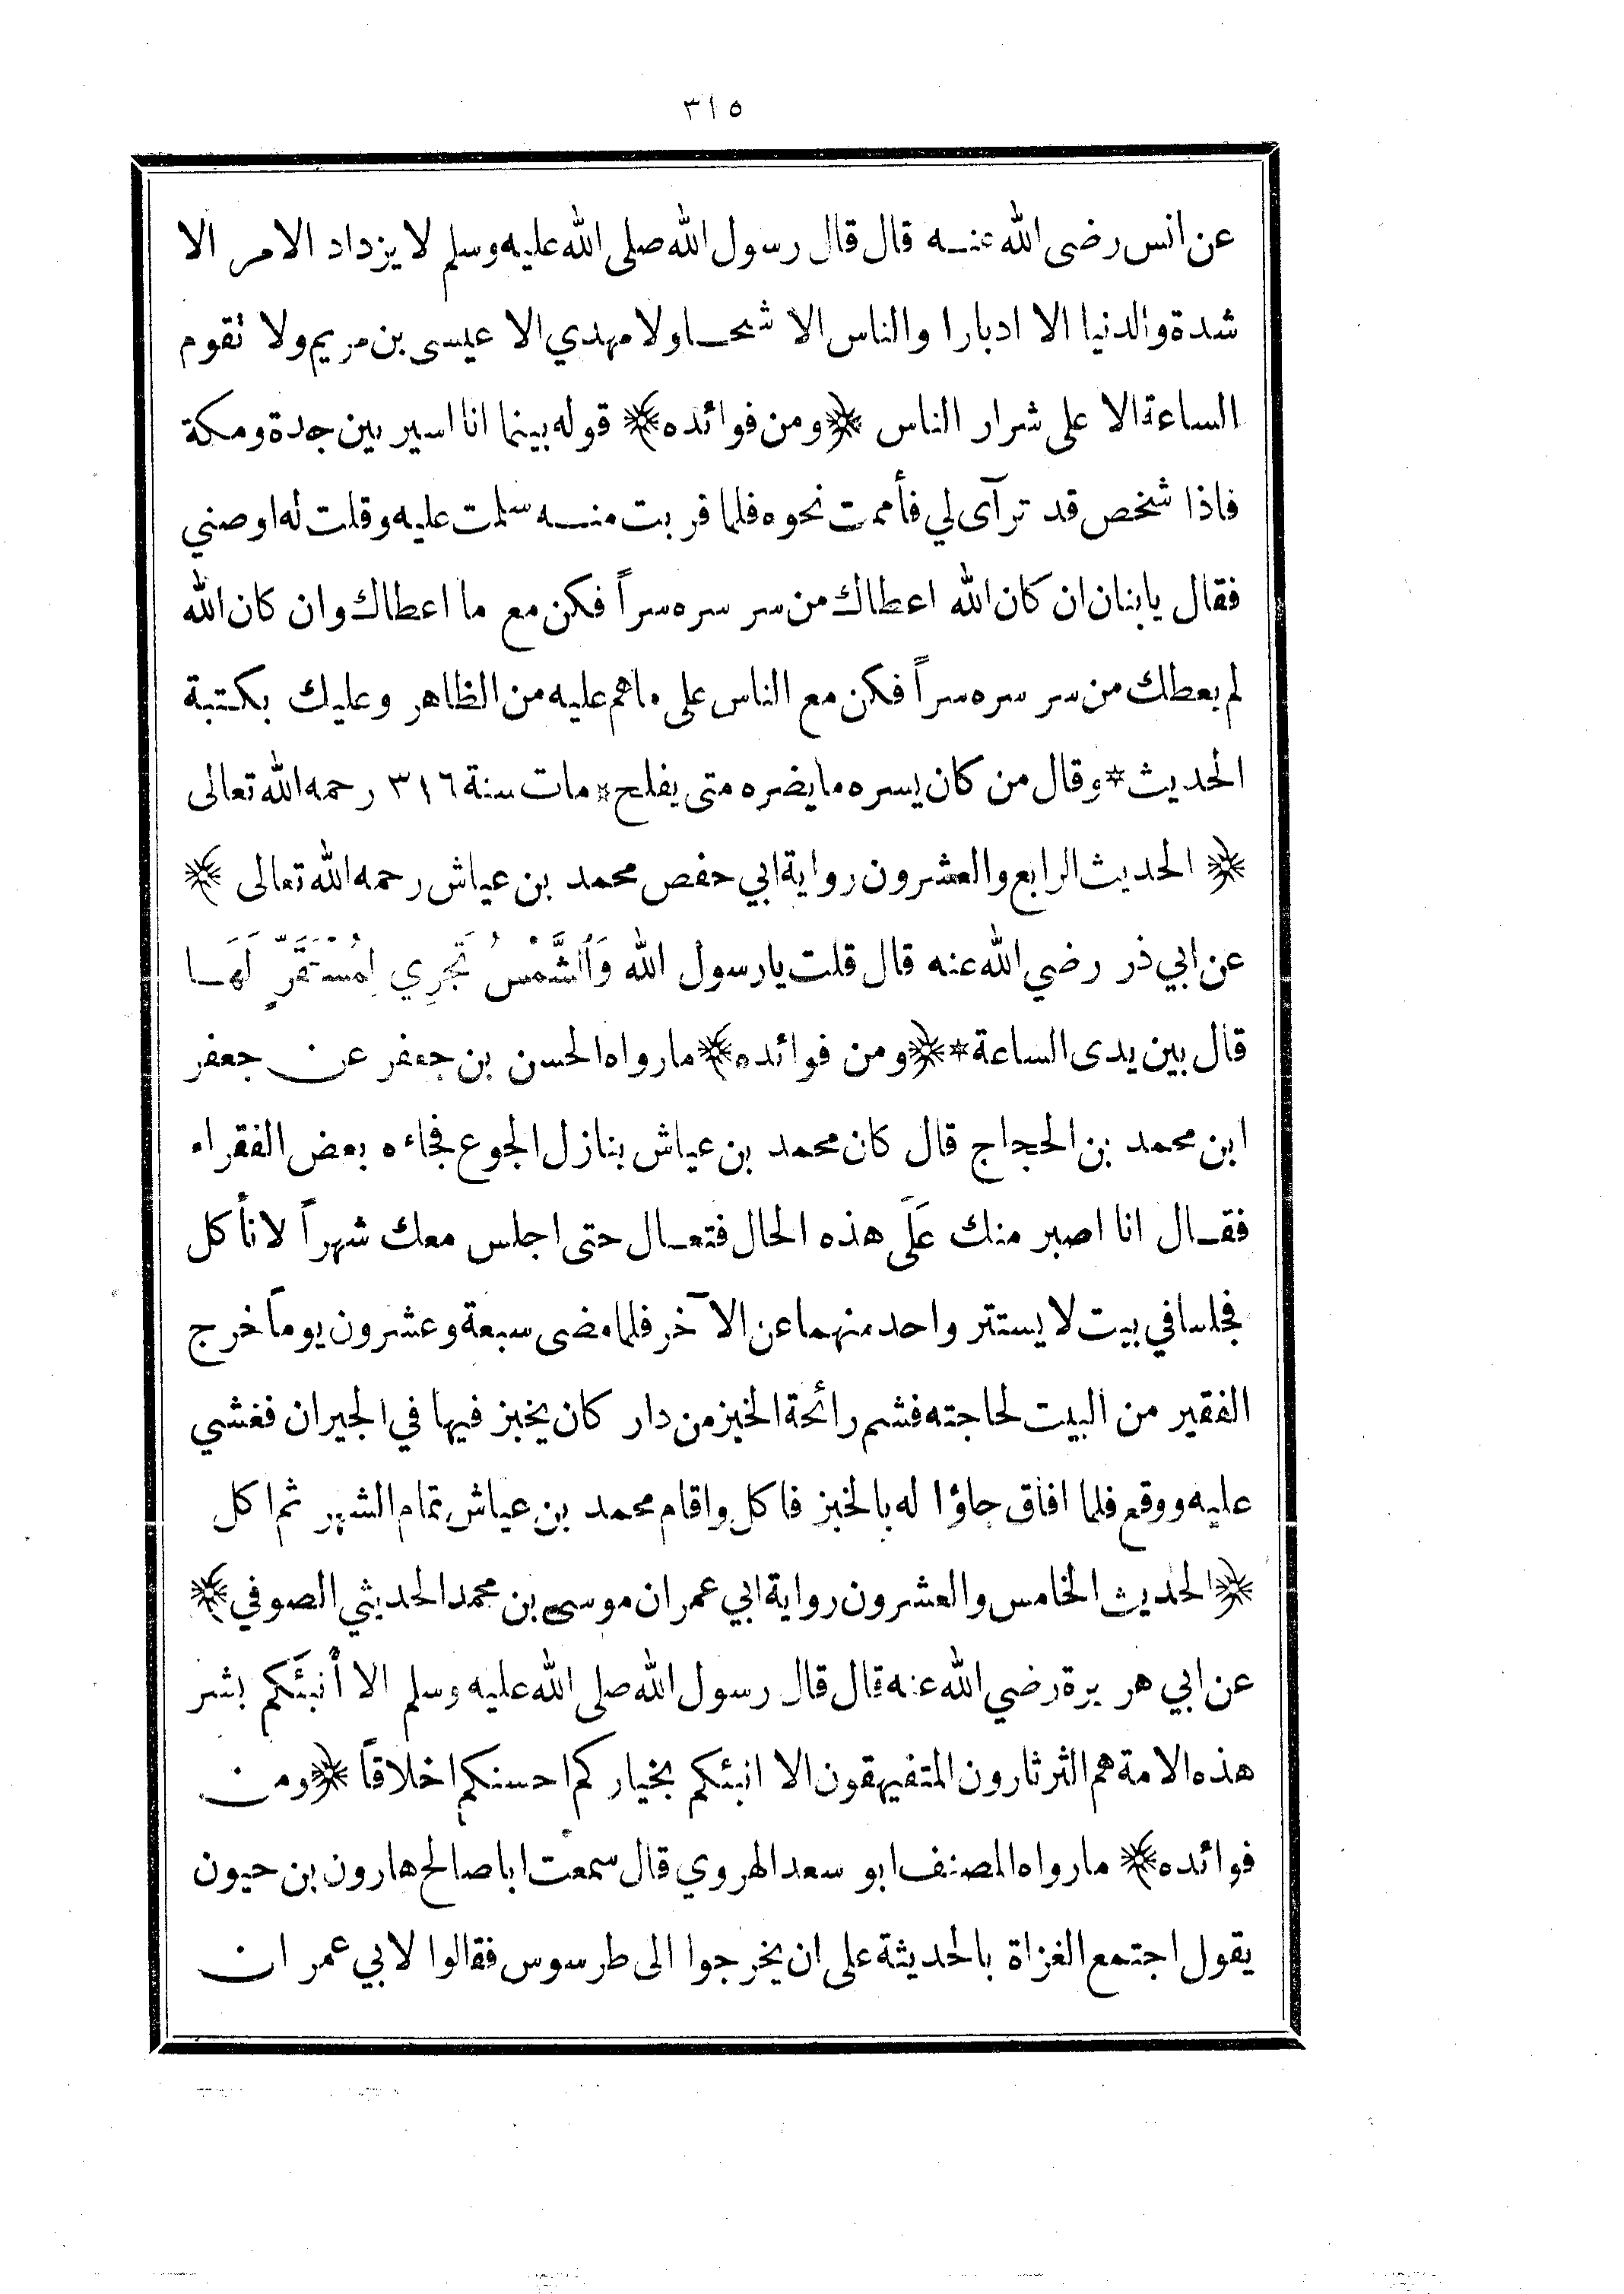 ٣١٥
عن انس رضى الله عنه قال قال رسول الله صلى الله عليه وسلم لا يزداد الامر الا
شدة والدنيا الا ادبارا والناس الا شحا ولا مهدي الا عيسى بن مريم ولا تقوم
الساعة الا على شرار الناس ﴿ومن فوائده﴾ قوله بينما انا اسير بين جدة ومكة
فاذا شخص قد ترآى لي فأممت نحوه فلما قربت منه سلمت عليه وقلت له اوصني
فقال يا بنان ان كان الله اعطاك من سر سره سراً فكن مع ما اعطاك وان كان الله
لم يعطك من سر سره سراً فكن مع الناس على ماهم عليه من الظاهر وعليك بكتبة
الحديث * وقال من كان يسره ما يضره متى يفلح * مات سنة ٣١٦ رحمه الله تعالى
﴿ الحديث الرابع والعشرون رواية ابي حفص محمد بن عياش رحمه الله تعالى ﴾
عن ابي ذر رضي الله عنه قال قلت يا رسول الله وَٱلشَّمْسُ تَجْرِي لِمُسْتَقَرٍّ لَهَا
قال بين يدى الساعة * ﴿ومن فوائده﴾ ما رواه الحسن بن جعفر عن جعفر
ابن محمد بن الحجاج قال كان محمد بن عياش ينازل الجوع فجاءه بعض الفقراء
فقال انا اصبر منك عَلَى هذه الحال فتعال حتى اجلس معك شهراً لا نأكل
فجلسا في بيت لا يستتر واحد منهما عن الآخر فلما مضى سبعة وعشرون يوماً خرج
الفقير من البيت لحاجته فشم رائحة الخبز من دار كان يخبز فيها في الجيران فغشي
عليه ووقع فلما افاق جاؤا له بالخبز فاكل واقام محمد بن عياش تمام الشهر ثم اكل
﴿الحديث الخامس والعشرون رواية ابي عمران موسى بن محمد الحديثي الصوفي﴾
عن ابي هريرة رضي الله عنه قال قال رسول الله صلى الله عليه وسلم الا أنبئكم بشر
هذه الامة هم الثرثارون المتفيهقون الا انبئكم بخياركم احسنكم اخلاقاً ﴿ومن
فوائده﴾ ما رواه المصنف ابو سعد الهروي قال سمعت ابا صالح هارون بن حيون
يقول اجتمع الغزاة بالحديثة على ان يخرجوا الى طرسوس فقالوا لابي عمران